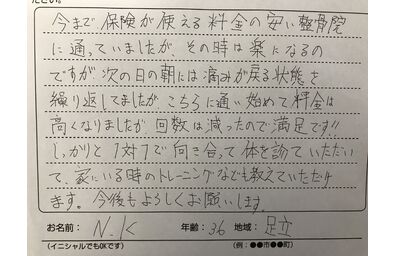 ださい。
今まで保険が使える料金の安い整骨院
に通っていましたが、その時は楽になるの
ですが次の日の朝には痛みが戻る状態を
繰り返してましたが、こちらに通い始めて料金は
高くなりましたが回数は減ったので満足です!!
しっかりと1対1で向き合って体を診ていただい
て、家にいる時のトレーニングなども教えていただけ
ます。今後もよろしくお願いします。
お名前: N.K 年齢: 36 地域: 足立
(イニシャルでもOKです) (例:●●市●●町)